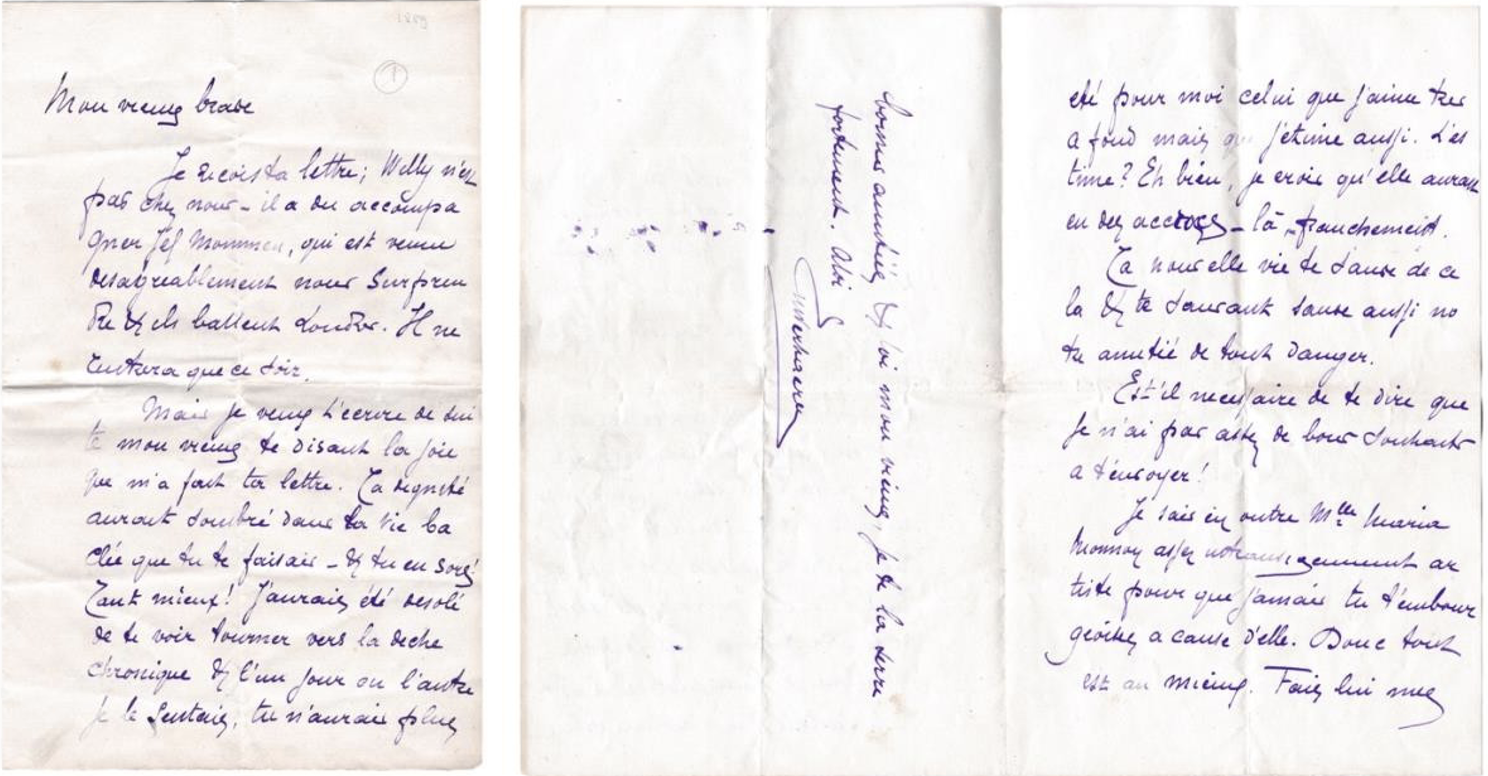 1889
1
Mon vieux brave
Je recois ta lettre; Willy n'est
pas chez nous - il a du accompa
gner Jef Mommen, qui est venu
desagreablement nous surpren
dre & ils battent Londres. Il ne
rentrera que ce soir.
Mais je veux t'ecrire de sui
te mon vieux te disant la joie
que m'a fait ta lettre. Ta dignité
aurait sombré dans ta vie ba
clée que tu te faisais - & tu en sors!
Tant mieux! J'aurais été desolé
de te voir tourner vers la deche
chronique & l'un jour ou l'autre
je le sentais, tu n'aurais plus
eté pour moi celui que j'aime tres
a fond mais que j'estime aussi. L'es
time? Eh bien, je crois qu'elle aurait
eu des accrocs - là, franchement.
Ta nouvelle vie te sauve de ce
la & te sauvant sauve aussi no
tre amitié de tout danger.
Est-il necessaire de te dire que
je n'ai pas assez de bons souhaits
a t'envoyer!
Je sais en outre Mlle Maria
Monnom assez artiste
pour que jamais tu t'embour
geoises a cause d'elle. Donc tout
est au mieux. Fais lui mes
bonnes amitiés & toi mon vieux, je te la serre
fortement. Abi
EVerhaeren